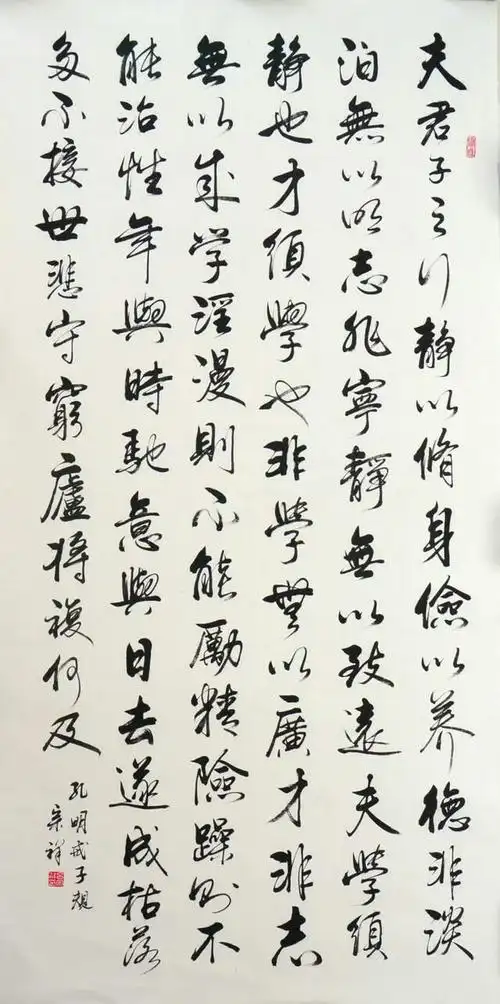 夫君子之行靜以脩身儉以养德非淡
泊無以明志非寧靜無以致遠夫學須
静也才須學也非學無以廣才非志
無以成学淫漫則不能勵精險躁则不
能治性年與時馳意與日去遂成枯落
多不接世悲守窮廬将複何及
孔明戒子
宗祥